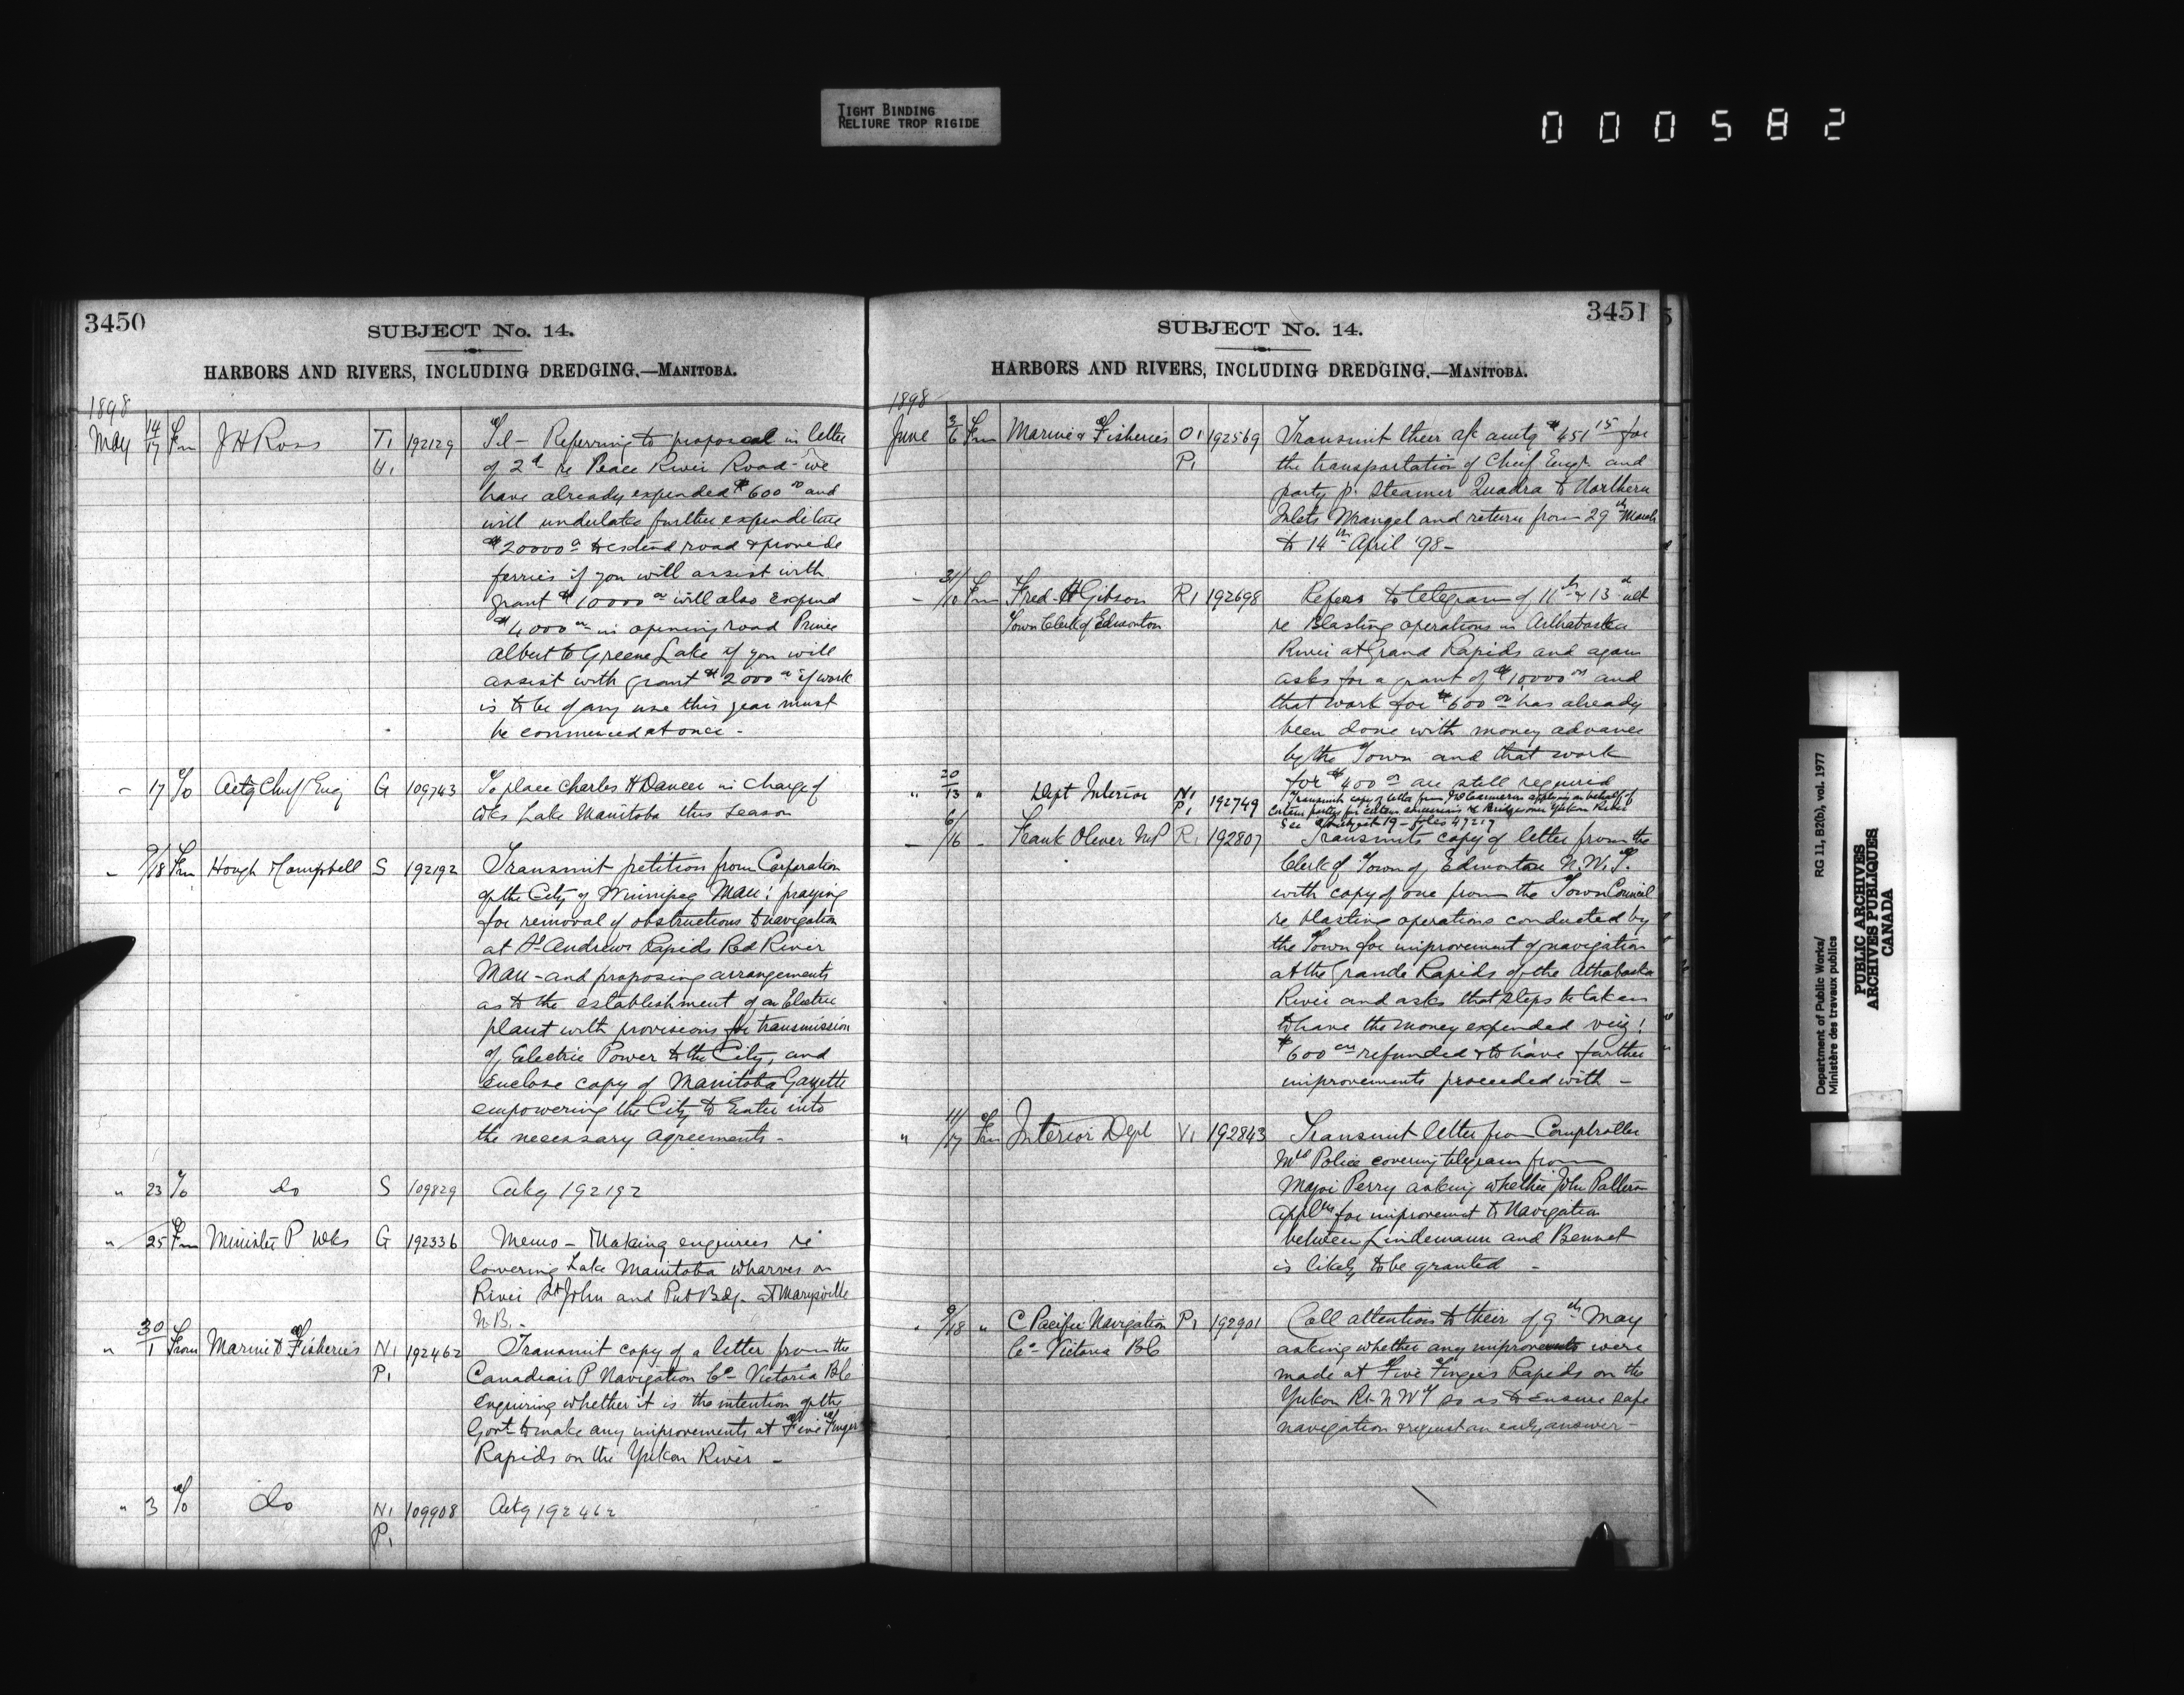 TIGHT BINDING
RELIURE TROP RIGIDE
000582
3450
SUBJECT No. 14.
HARBORS AND RIVERS, INCLUDING DREDGING.—MANITOBA.
1898
May 14/17 Fm J H Ross T1 192129 Tel — Referring to proposal in letter
H1 of 2d re Peace River Road - we
have already expended $600 00 and
will undertake further expenditure
$20000 to extend road & provide
ferries if you will assist with
grant $10000 00 will also expend
$4000 00 in opening road Prince
Albert to Greene Lake if you will
assist with grant $2000 00 if work
is to be of any use this year must
be commenced at once -
" 17 To Actg Chief Eng G 109743 To place Charles H Dancer in charge of
Wks Lake Manitoba this season
" 9/18 Fm Hough & Campbell S 192192 Transmit petition from Corporation
of the City of Winnipeg Man: praying
for removal of obstructions to navigation
at St Andrews Rapids Red River
Man - and proposing arrangements
as to the establishment of an Electric
plant with provisions for transmission
of Electric Power to the City, and
enclose copy of Manitoba Gazette
empowering the City to Enter into
the necessary agreements -
" 23 To do S 109829 Ackg 192192
" 25 Fm Minister P Wks G 192336 Memo - Making enquiries re
lowering Lake Manitoba wharves on
River St John and Pub Bdg. at Marysville
N.B. -
" 30/1 From Marine & Fisheries N1 192462 Transmit copy of a letter from the
P1 Canadian P Navigation Co - Victoria BC
enquiring whether it is the intention of the
Govt to make any improvements at Five Finger
Rapids on the Yukon River -
" 3 To do N1 109908 Ackg 192462
P1
3451
SUBJECT No. 14.
HARBORS AND RIVERS, INCLUDING DREDGING.—MANITOBA.
1898
June 3/6 Fm Marine & Fisheries O1 192569 Transmit their a/c amtg $451 15 for
P1 the transportation of Chief Engr. and
party p. Steamer Quadra to Northern
Inlets Wrangel and return from 29th March
to 14th April '98 -
" 31/10 Fm Fred. H Gibson R1 192698 Refers to telegram of 11th & 13th ult
Town Clerk of Edmonton re Blasting operations in Athabaska
River at Grand Rapids and again
asks for a grant of $10000 00 and
that work for $600 00 has already
been done with money advance
by the Town and that work
for $400 00 are still required
" 20/13 " Dept Interior N1 192749 Transmits copy of letter from applying on behalf of
P1 certain parties for certain Yukon River
See Subject 19 - folio 47217
" 6/16 " Frank Oliver MP R1 192807 Transmits copy of letter from the
Clerk of Town of Edmonton N.W.T.
with copy of one from the Town Council
re blasting operations conducted by
the Town for improvement of navigation
at the Grande Rapids of the Athabaska
River and asks that steps be taken
to have the money expended viz:
$600 00 refunded & to have further
improvements proceeded with -
" 11/17 Fm Interior Dept V1 192843 Transmit letter from Comptroller
Police covering telegram from
Major Perry asking whether John
Appln for improvemt to Navigation
between Lindemann and Bennet
is likely to be granted -
" 9/18 " C Pacific Navigation P1 192901 Call attention to their of 9th May
Co - Victoria BC asking whether any improvements were
made at Five Fingers Rapids on the
Yukon Rr N W T so as to ensure safe
navigation & request an early answer -
Department of Public Works/ RG 11, B2(b), vol. 1977
Ministère des travaux publics
PUBLIC ARCHIVES
ARCHIVES PUBLIQUES
CANADA